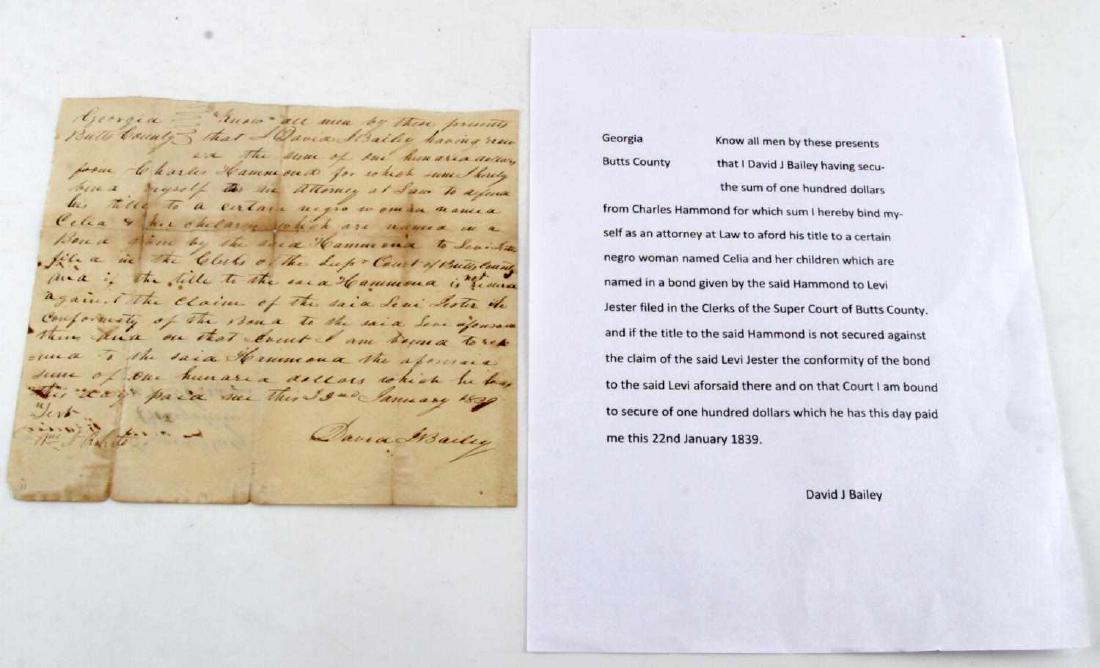 Georgia "Know all men by these presents
Butts County that I David J Bailey having
ed the sum of one hundred dollars
from Charles Hammond for which sum I hereby
bind myself as an Attorney at Law to defend
his title to a certain negro woman named
Celia & her children which are named in a
Bond given by the said Hammond to Levi
filed in the Clerks of the Supr Court of Butts County
and if the title to the said Hammond is not
against the claim of the said Levi Jester in
conformity of the Bond to the said Levi aforesaid
then and on that Event I am bound to
to the said Hammond the aforesaid
sum of one hundred dollars which he has
this day paid me this 22nd January 1839
Test
David J Bailey
Georgia Know all men by these presents
Butts County that I David J Bailey having secu-
the sum of one hundred dollars
from Charles Hammond for which sum I hereby bind my-
self as an attorney at Law to aford his title to a certain
negro woman named Celia and her children which are
named in a bond given by the said Hammond to Levi
Jester filed in the Clerks of the Super Court of Butts County.
and if the title to the said Hammond is not secured against
the claim of the said Levi Jester the conformity of the bond
to the said Levi aforsaid there and on that Court I am bound
to secure of one hundred dollars which he has this day paid
me this 22nd January 1839.
David J Bailey